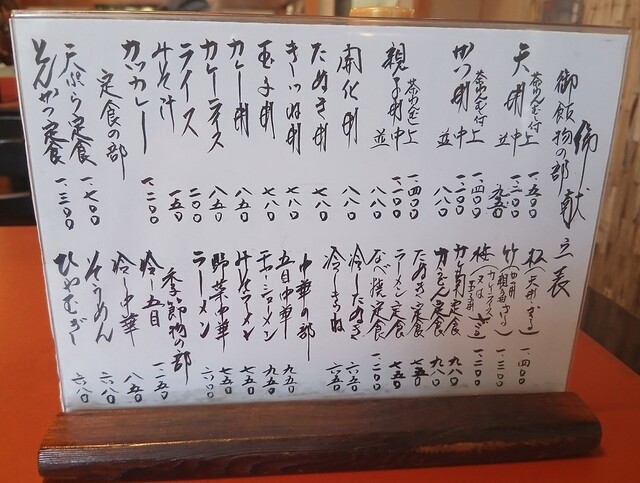 御献立表
御飯物の部
天丼 茶わんむし付 上 一、五〇〇
中 一、二〇〇
並 九五〇
かつ丼 茶わんむし付 上 一、四〇〇
中 一、二〇〇
並 八八〇
親子丼 茶わんむし 上 一、四〇〇
中 一、一〇〇
並 八八〇
開化丼 八八〇
たぬき丼 七八〇
きつね丼 七八〇
玉子丼 七八〇
カレー丼 八五〇
カレーライス 八五〇
ライス 二〇〇
みそ汁 一五〇
カツカレー 一、二〇〇
定食の部
天ぷら定食 一、七〇〇
とんかつ定食 一、三〇〇
松（天丼 ざる） 一、四〇〇
竹 親子丼 ざる 一、三〇〇
梅（カレーライス 又は玉子丼 ざる） 一、二〇〇
定食 九八〇
定食 八八〇
たぬき定食 七五〇
ラーメン定食 七五〇
なべ焼定食 一、二〇〇
冷したぬき 六五〇
冷しきつね 六五〇
中華の部
五目中華 九五〇
チャーシューメン 九五〇
みそラーメン 七五〇
野菜中華 七五〇
ラーメン 六〇〇
季節物の部
冷し五目 一、一五〇
冷し中華 八五〇
そうめん 六八〇
ひやむぎ 六八〇